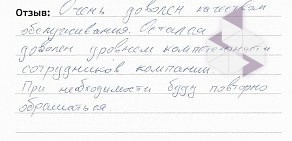 Отзыв: Очень доволен качеством
обслуживания. Остался
доволен уровнем компетентности
сотрудников компании.
При необходимости буду повторно
обращаться